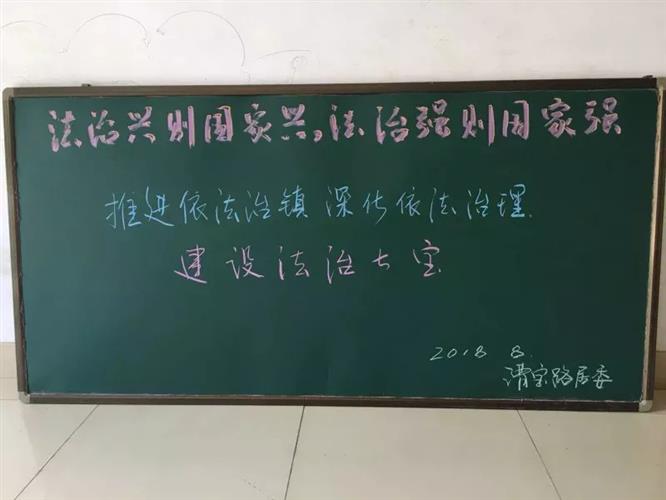 法治兴则国家兴,法治强则国家强
推进依法治镇 深化依法治理.
建设法治大宝
2018 8.
清宝路居委